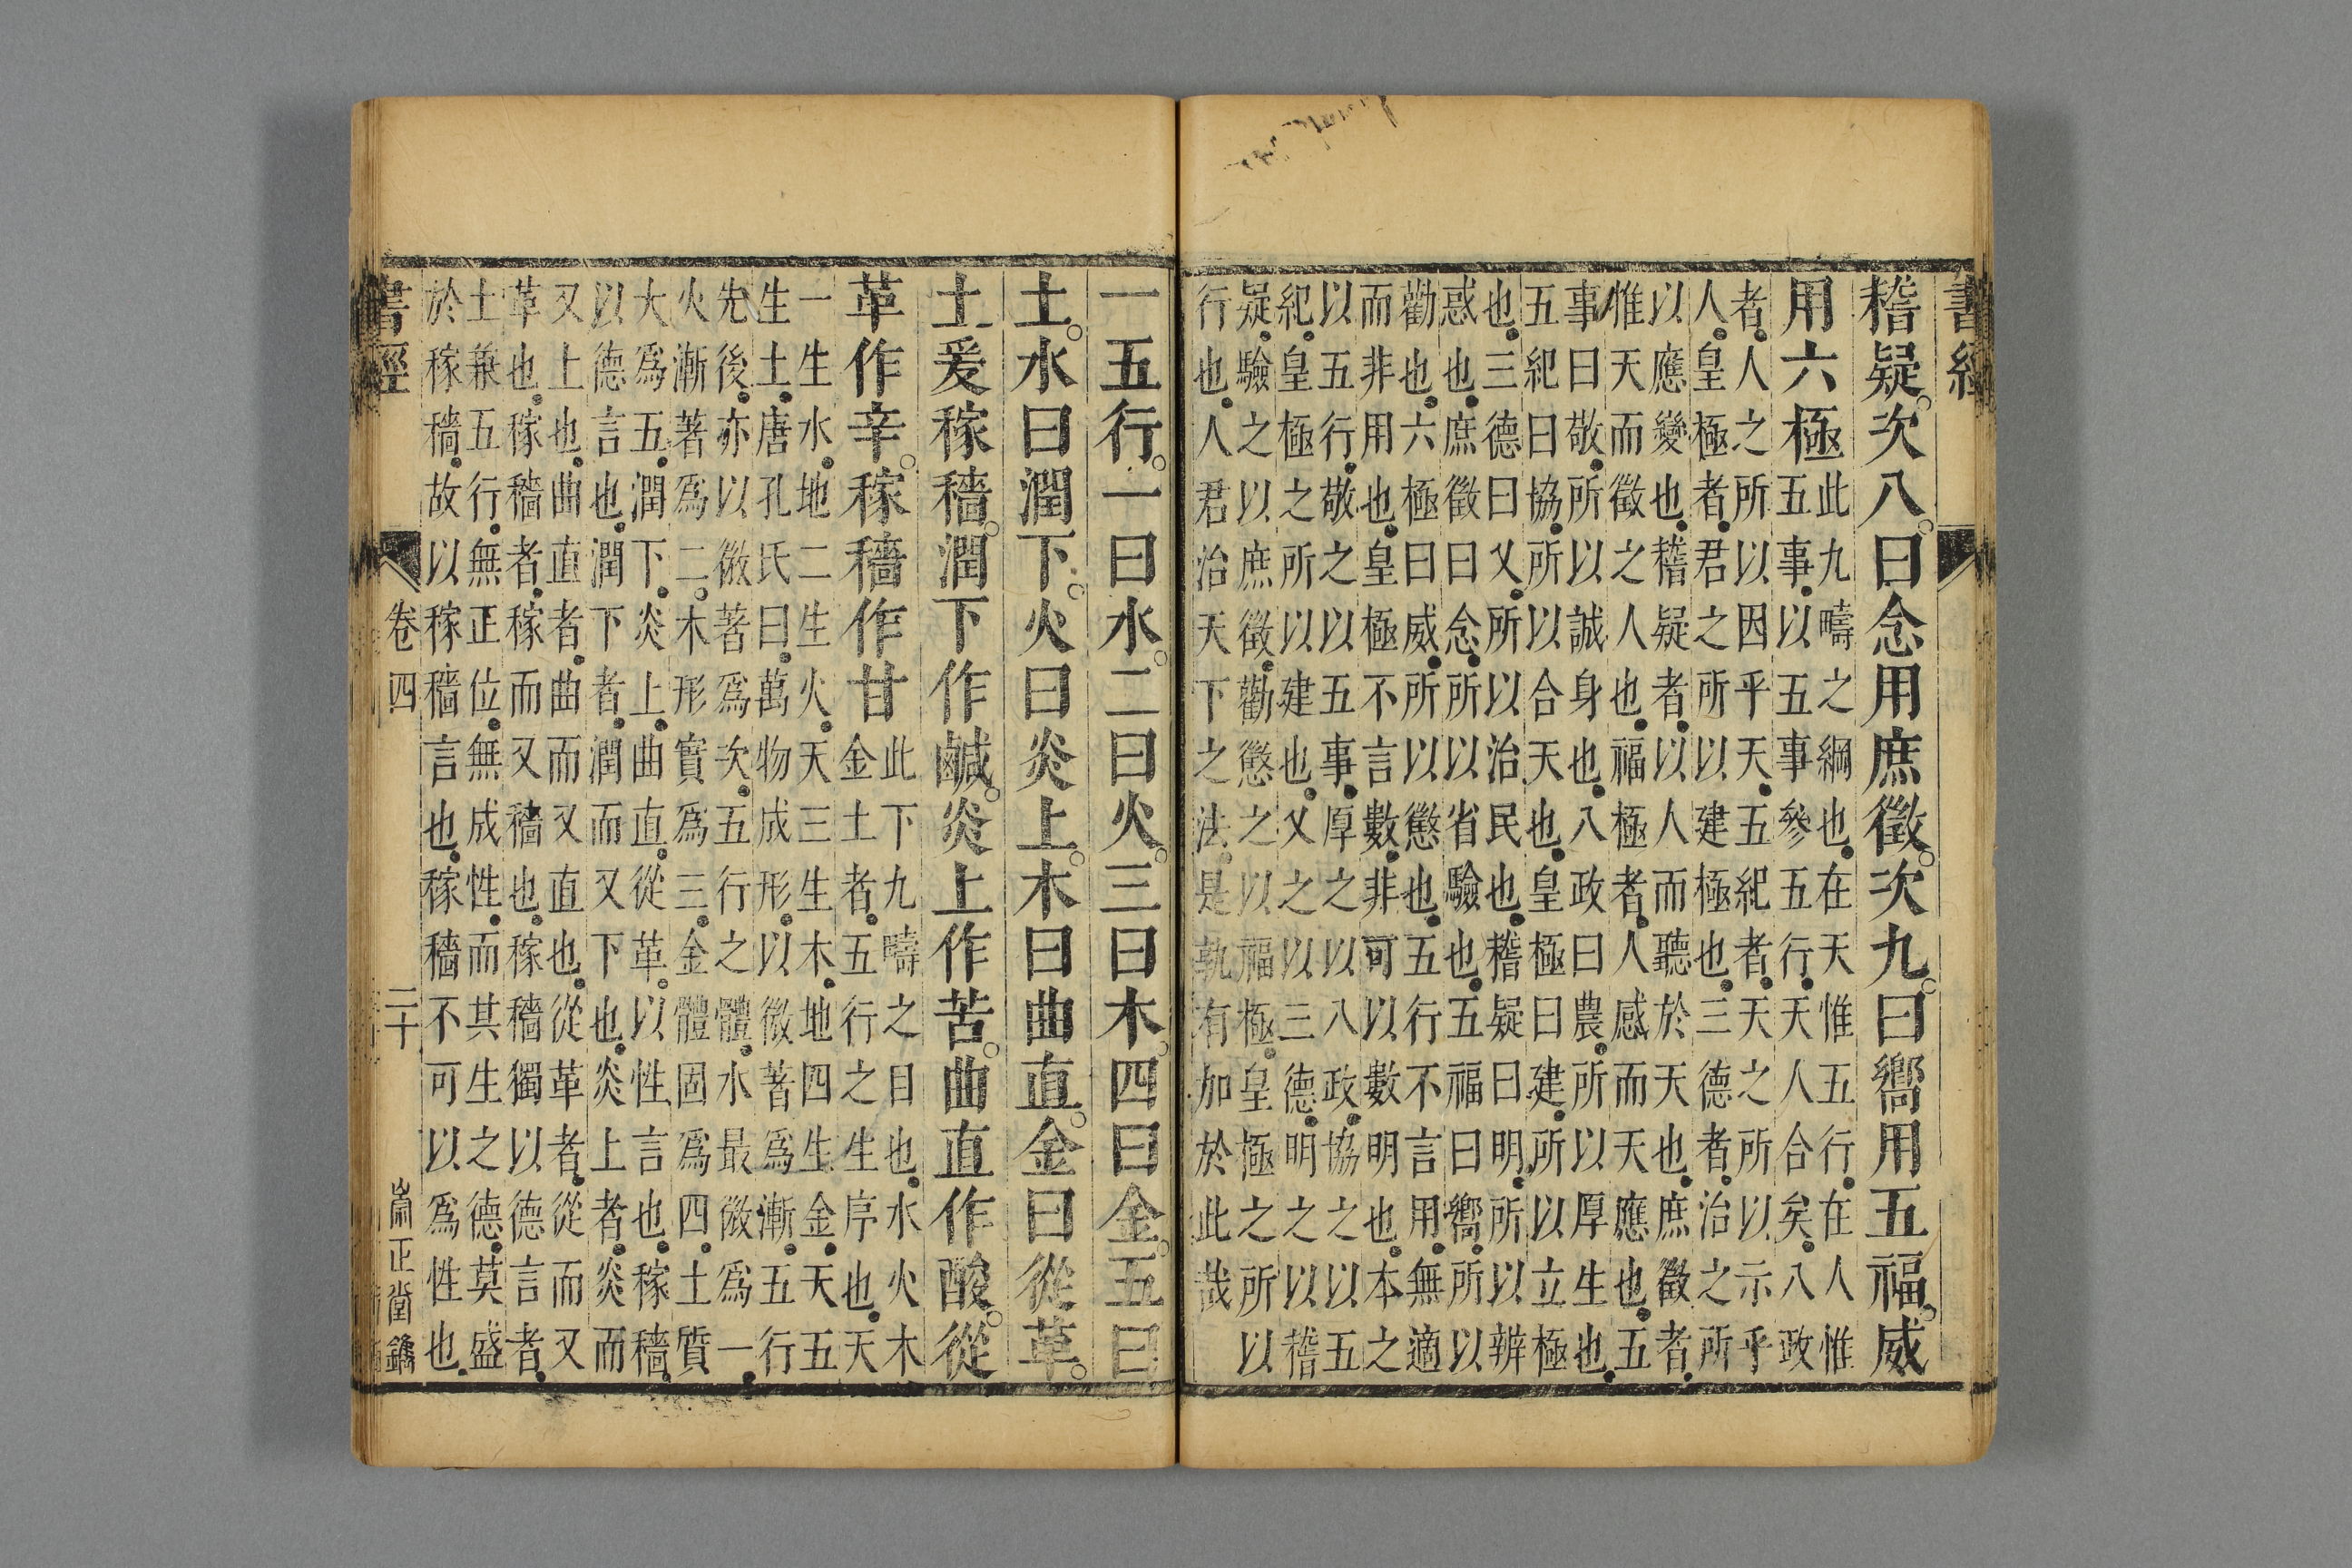 書經
稽疑次八曰念用庶徵次九曰嚮用五福威
用六極
此九疇之綱也在天惟五行在人惟
五事以五事參五行天人合矣八政
者人之所以因乎天五紀者天之所以示乎
人皇極者君之所以建極也三德者治之所
以應變也稽疑者以人而聽於天也庶徵者
惟天而徵之人也福極者人感而天應也五
事曰敬所以誠身也八政曰農所以厚生也
五紀曰協所以合天也皇極曰建所以立極
也三德曰乂所以治民也稽疑曰明所以辨
惑也庶徵曰念所以省驗也五福曰嚮所以
勸也六極曰威所以懲也五行不言用無適
而非用也皇極不言數非可以數明也本之
以五行敬之以五事厚之以八政協之以五
紀皇極之所以建也乂之以三德明之以稽
疑驗之以庶徵勸懲之以福極皇極之所以
行也人君治天下之法是孰有加於此哉
一五行一曰水二曰火三曰木四曰金五曰
土水曰潤下火曰炎上木曰曲直金曰從革
土爰稼穡潤下作鹹炎上作苦曲直作酸從
革作辛稼穡作甘
此下九疇之目也水火木
金土者五行之生序也天
一生水地二生火天三生木地四生金天五
生土唐孔氏曰萬物成形以微著爲漸五行
先後亦以微著爲次五行之體水最微爲一
火漸著爲二木形實爲三金體固爲四土質
大爲五潤下炎上曲直從革以性言也稼穡
以德言也潤下者潤而又下也炎上者炎而
又上也曲直者曲而又直也從革者從而又
革也稼穡者稼而又穡也稼穡獨以德言者
土兼五行無正位無成性而其生之德莫盛
於稼穡故以稼穡言也稼穡不可以爲性也
書經 卷四 二十 崇正堂鐫